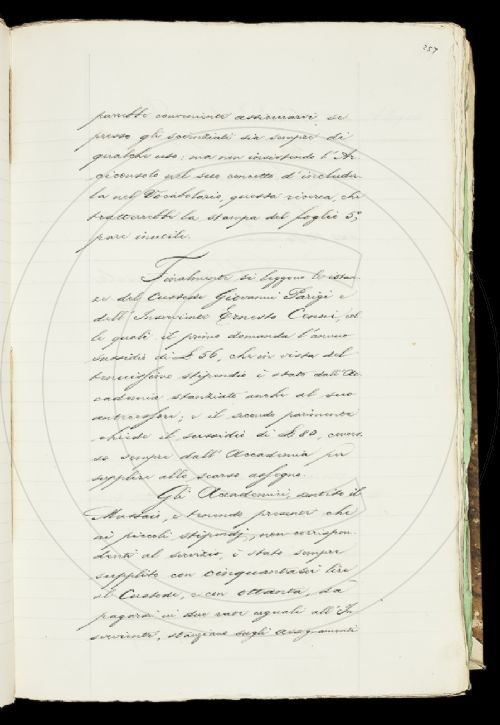 257
parrebbe conveniente assicurarsi se
presso gli scienziati sia sempre di
qualche uso; ma non insistendo l'Ar
ciconsolo nel suo concetto d'includer
la nel Vocabolario, questa ricerca, che
tratterrebbe la stampa del foglio 5º,
pare inutile.
Finalmente si leggono le istan
ze del Custode Giovanni Parigi e
dell'Inserviente Ernesto Censi, col
le quali il primo domanda l'annuo
sussidio di £ 56, che in vista del
tenuissimo stipendio è stato dall'Ac
cademia stanziato anche al suo
antecessore; e il secondo parimente
chiede il sussidio di £ 80, conces
so sempre dall'Accademia per
supplire allo scarso assegno.
Gli Accademici, sentito il
Massaio, e tenendo presente che
ai piccoli stipendj, non corrispon
denti al servizio, è stato sempre
supplito con cinquantasei lire
al Custode, e con ottanta, da
pagarsi in due rate uguali all'In
serviente, stanziano sugli assegnamenti